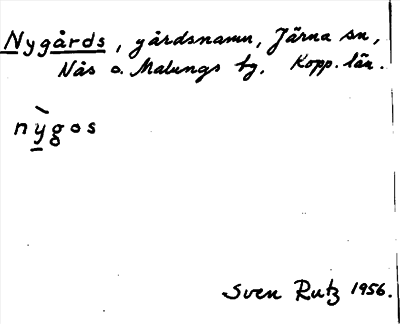 Nygårds, gårdsnamn, Järna sn,
Nås o. Malungs tg. Kopp. län.
nỳgos
Sven Rutz 1956.